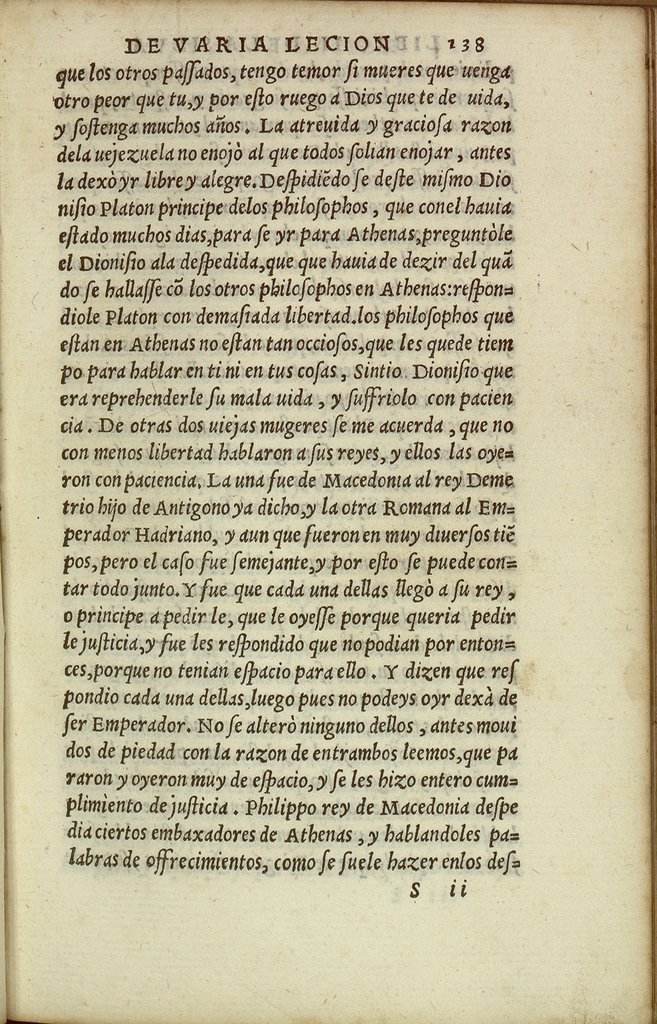 DE VARIA LECION 138
que los otros paſſados, tengo temor ſi mueres que uenga
otro peor que tu,y por eſto ruego a Dios que te de uida,
y ſoſtenga muchos años. La atreuida y gracioſa razon
dela uejezuela no enojò al que todos ſolian enojar, antes
la dexò yr libre y alegre. Deſpidiẽdo ſe deſte miſmo Dio
niſio Platon principe delos philoſophos, que conel hauia
eſtado muchos dias,para ſe yr para Athenas,preguntòle
el Dioniſio ala deſpedida,que que hauia de dezir del quã
do ſe hallaſſe cõ los otros philoſophos en Athenas:reſpon=
diole Platon con demaſiada libertad.los philoſophos que
eſtan en Athenas no eſtan tan occioſos,que les quede tiem
po para hablar en ti ni en tus coſas, Sintio Dioniſio que
era reprehenderle ſu mala uida, y ſuffriolo con pacien
cia. De otras dos uiejas mugeres ſe me acuerda, que no
con menos libertad hablaron a ſus reyes, y ellos las oye=
ron con paciencia. La una fue de Macedonia al rey Deme
trio hijo de Antigono ya dicho,y la otra Romana al Em=
perador Hadriano, y aun que fueron en muy diuerſos tiẽ
pos,pero el caſo fue ſemejante,y por eſto ſe puede con=
tar todo junto. Y fue que cada una dellas llegò a ſu rey,
o principe a pedir le, que le oyeſſe porque queria pedir
le juſticia,y fue les reſpondido que no podian por enton=
ces,porque no tenian eſpacio para ello. Y dizen que reſ
pondio cada una dellas,luego pues no podeys oyr dexà de
ſer Emperador. No ſe alterò ninguno dellos, antes moui
dos de piedad con la razon de entrambos leemos,que pa
raron y oyeron muy de eſpacio,y ſe les hizo entero cum=
plimiento de juſticia. Philippo rey de Macedonia deſpe
dia ciertos embaxadores de Athenas, y hablandoles pa=
labras de offrecimientos, como ſe ſuele hazer enlos deſ=
S ii